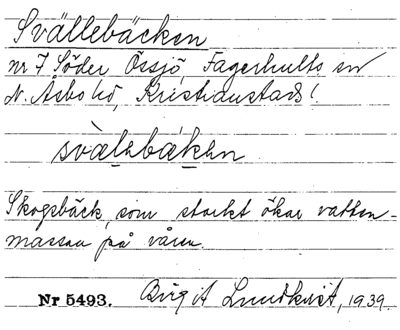 Svällebäcken
nr 7 Söder Össjö, Fagerhults sn
N. Åsbo hd, Kristianstads l.
svàlebákən
Skogsbäck, som starkt ökar vatten-
massan på våren.
Nr 5493. Birgit Lundkvist, 1939.